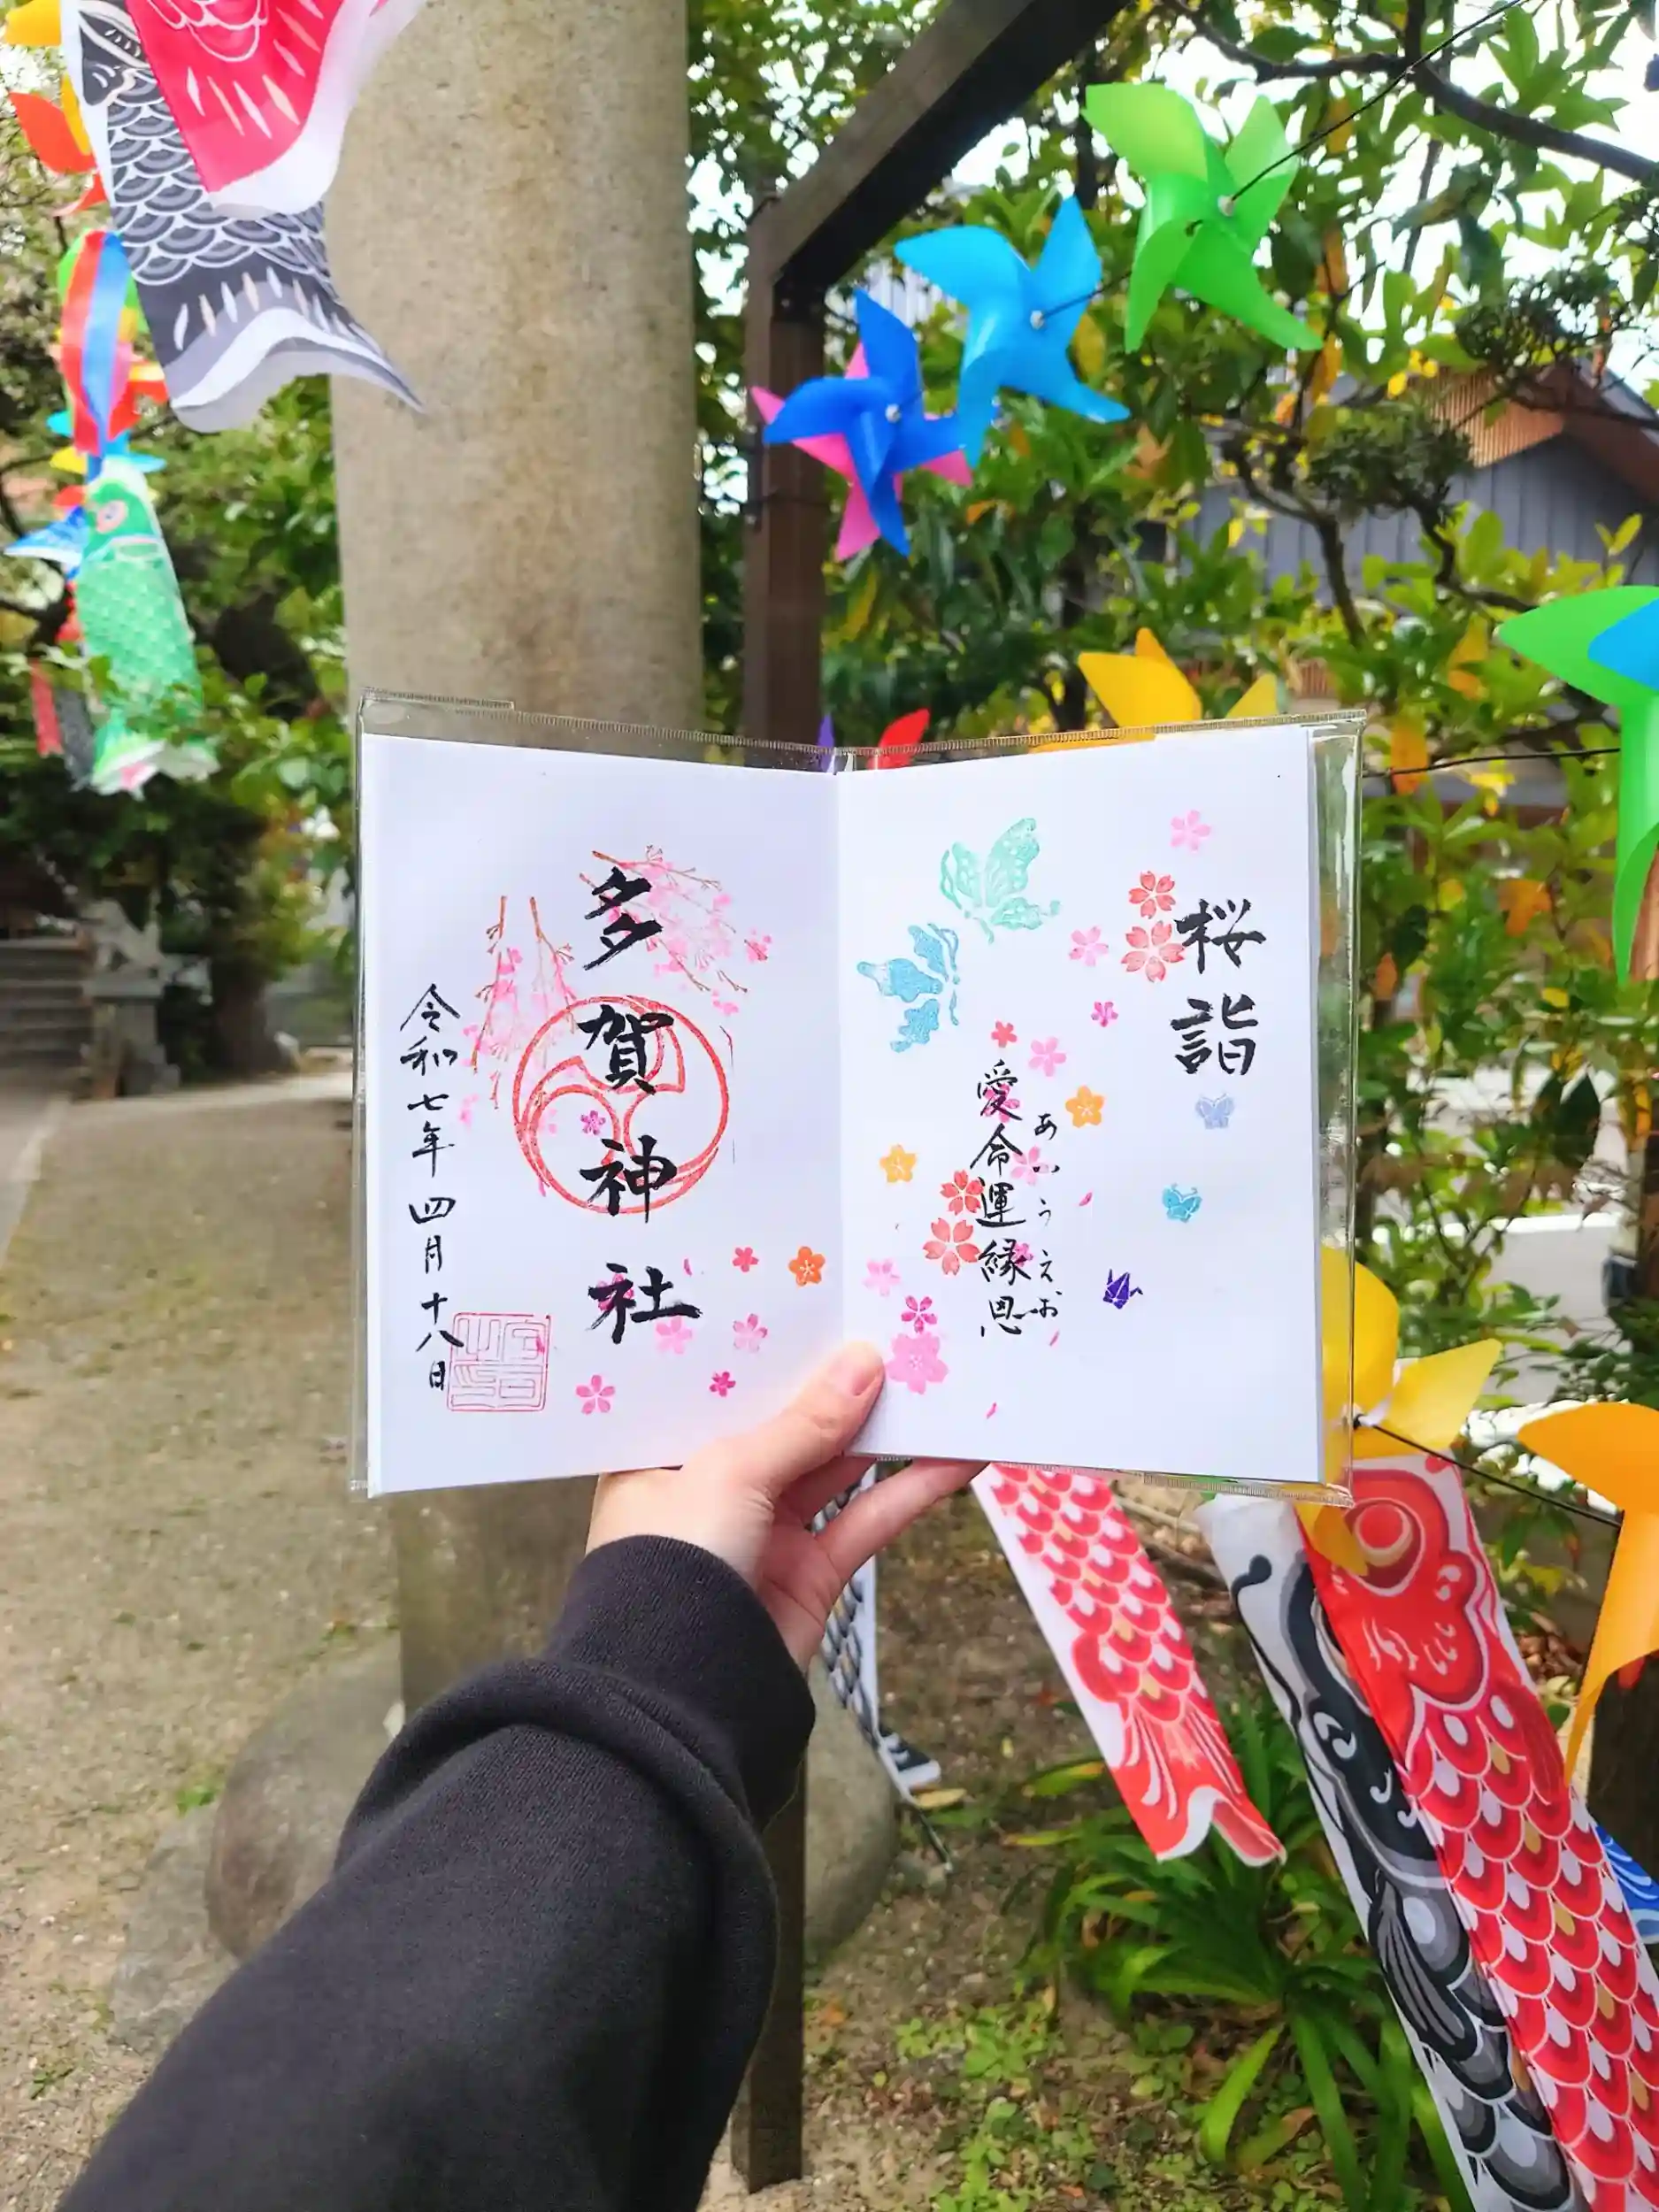 桜詣
あいうえお
愛命運縁恩
多賀神社
令和七年四月十八日